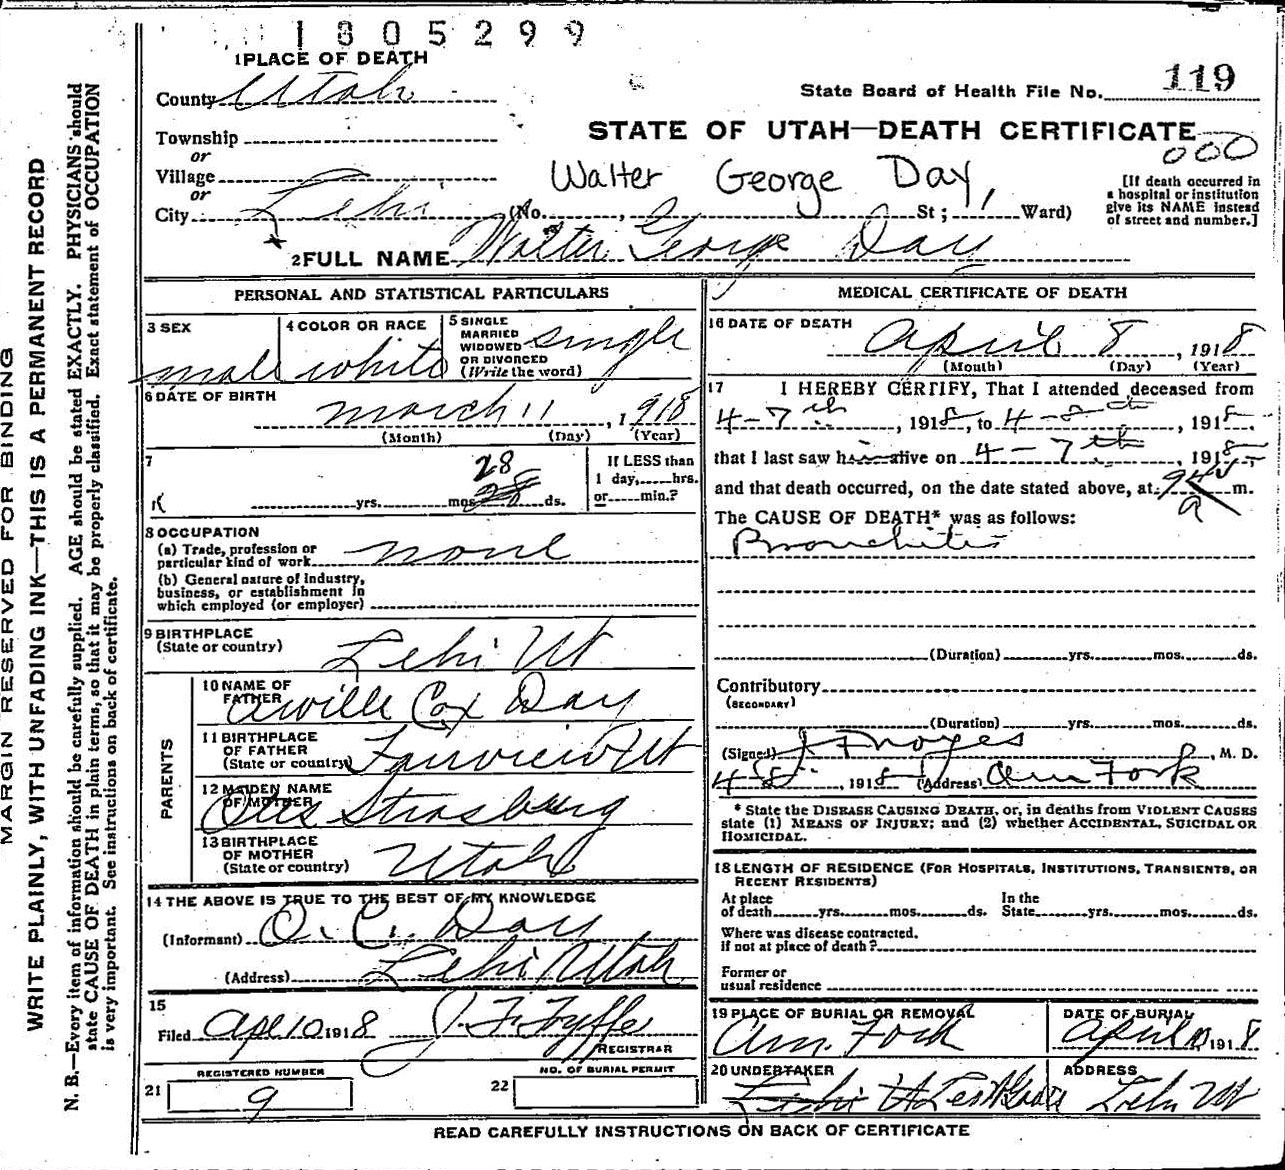 1805299
1 PLACE OF DEATH
County Utah
State Board of Health File No. 119
Township
STATE OF UTAH—DEATH CERTIFICATE
or
000
Village
Walter George Day
[If death occurred in
a hospital or institution
give its NAME instead
of street and number.]
or
City Lehi (No. , St; Ward)
2 FULL NAME Walter George Day
PERSONAL AND STATISTICAL PARTICULARS
3 SEX
male
4 COLOR OR RACE
white
5 SINGLE
MARRIED
WIDOWED
OR DIVORCED
(Write the word)
single
6 DATE OF BIRTH
March 11, 1918
(Month) (Day) (Year)
7
28
yrs. mos. 28 ds.
If LESS than
1 day, hrs.
or min.?
8 OCCUPATION
(a) Trade, profession or
particular kind of work none
(b) General nature of industry,
business, or establishment in
which employed (or employer)
9 BIRTHPLACE
(State or country) Lehi Ut
PARENTS
10 NAME OF
FATHER Orville Cox Day
11 BIRTHPLACE
OF FATHER
(State or country) Fairview Ut
12 MAIDEN NAME
OF MOTHER Strasburg
13 BIRTHPLACE
OF MOTHER
(State or country) Utah
14 THE ABOVE IS TRUE TO THE BEST OF MY KNOWLEDGE
(Informant) O. C. Day
(Address) Lehi Utah
15
Filed Apl 10 1918 J. F. Fyffe
REGISTRAR
REGISTERED NUMBER
21 9
NO. OF BURIAL PERMIT
22
MEDICAL CERTIFICATE OF DEATH
16 DATE OF DEATH
April 8, 1918
(Month) (Day) (Year)
17 I HEREBY CERTIFY, That I attended deceased from
4-7th, 1918, to 4-8th, 1918
that I last saw him alive on 4-7th, 1918
and that death occurred, on the date stated above, at m.
a
The CAUSE OF DEATH* was as follows:
Bronchitis
(Duration) yrs. mos. ds.
Contributory
(SECONDARY)
(Duration) yrs. mos. ds.
(Signed) J F Noyes, M. D.
4-8, 1918 (Address) Am Fork
* State the DISEASE CAUSING DEATH, or, in deaths from VIOLENT CAUSES
state (1) MEANS OF INJURY; and (2) whether ACCIDENTAL, SUICIDAL OR
HOMICIDAL.
18 LENGTH OF RESIDENCE (FOR HOSPITALS, INSTITUTIONS, TRANSIENTS, OR
RECENT RESIDENTS)
At place
of death yrs. mos. ds.
In the
State yrs. mos. ds.
Where was disease contracted.
if not at place of death?
Former or
usual residence
19 PLACE OF BURIAL OR REMOVAL
Am. Fork
DATE OF BURIAL
April 10 1918
20 UNDERTAKER
Lehi Ut
ADDRESS
Lehi Ut
READ CAREFULLY INSTRUCTIONS ON BACK OF CERTIFICATE
MARGIN RESERVED FOR BINDING
WRITE PLAINLY, WITH UNFADING INK—THIS IS A PERMANENT RECORD
N. B.—Every item of information should be carefully supplied. AGE should be stated EXACTLY. PHYSICIANS should
state CAUSE OF DEATH in plain terms, so that it may be properly classified. Exact statement of OCCUPATION
is very important. See instructions on back of certificate.